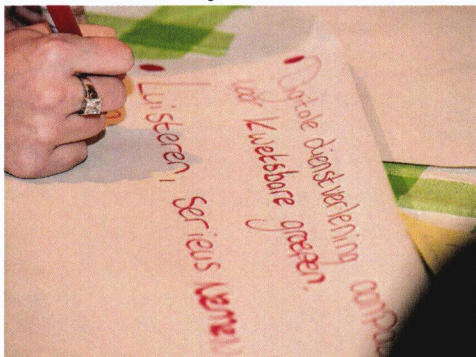 • Digitale dienstverlening
voor kwetsbare groepen.
• Luisteren, serieus nemen